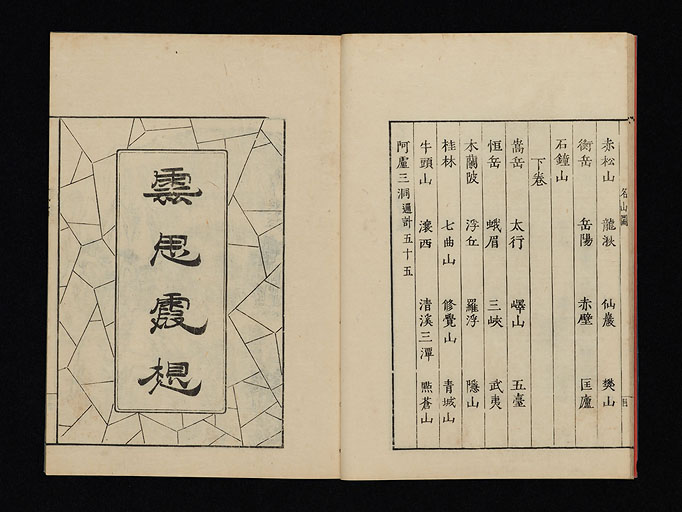 名山圖
赤松山 龍湫 仙巖 樊山
衡岳 岳陽 赤壁 匡廬
石鐘山
下卷
嵩岳 太行 嶧山 五臺
恒岳 峨眉 三峽 武夷
木蘭陂 浮丘 羅浮 隱山
桂林 七曲山 修覺山 青城山
牛頭山 瀼西 清溪三潭 點蒼山
阿廬三洞通計五十五
雲思霞想